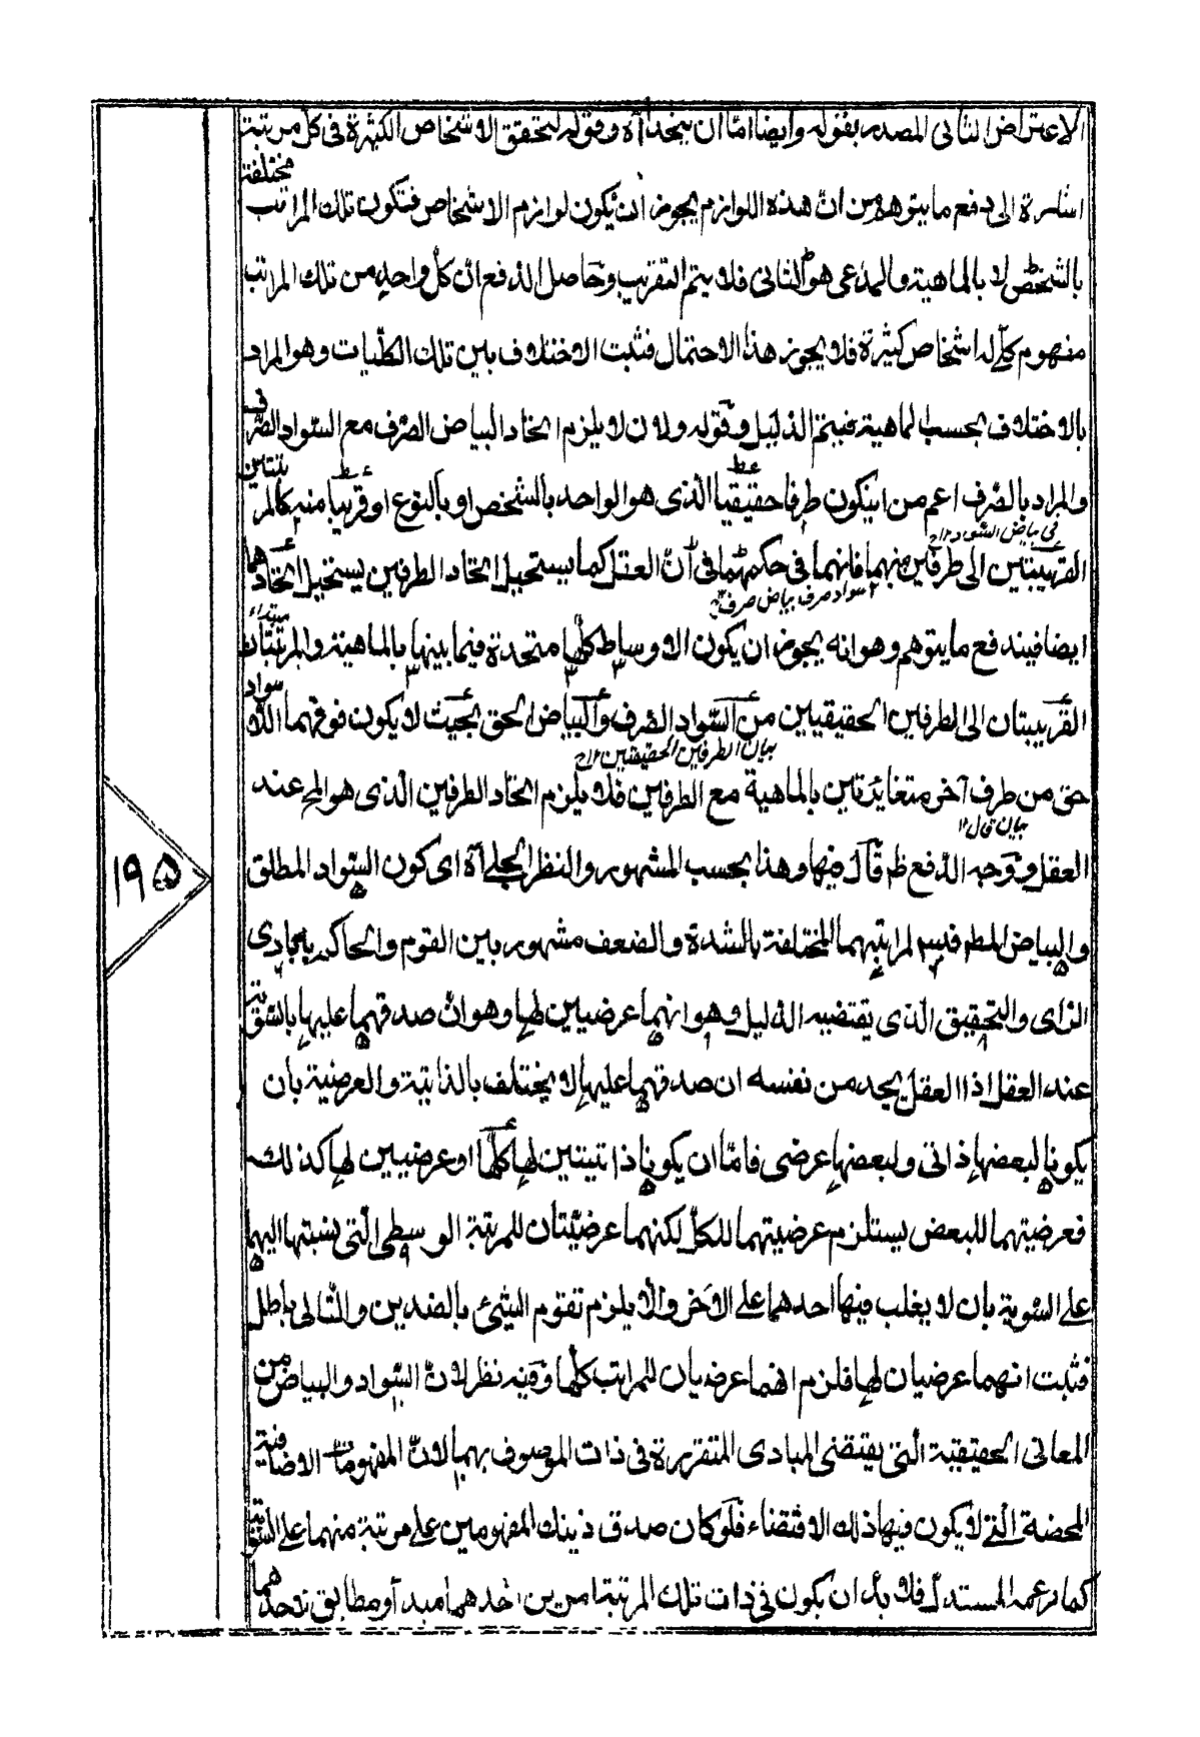 الاعتراض الثانى المصدر بقوله وايضا امّا ان يتخذا آه وقوله لتحقق الاشخاص الكثيرة فى كل مرتبة
اشارة الى دفع ما يتوهم من انّ هذه اللوازم يجوز ان يكون لوازم الاشخاص فتكون تلك المراتب مختلفة
بالتشخّص لا بالماهية والمدّعى هو الثانى فلا يتم التقريب وحاصل الدّفع ان كلّ واحد من تلك المراتب
مفهوم كلّى له اشخاص كثيرة فلا يجوز هذا الاحتمال فثبت الاختلاف بين تلك الكلّيات وهو المراد
بالاختلاف بحسب الماهية فيتمّ الدّليل وقوله ولان لا يلزم اتحاد البياض الصّرف مع السّواد الصّرف
والمراد بالصّرف اعم من ان يكون طرفا حقيقيا الذى هو الواحد بالشخص او بالنوع او قريبا منه كالمرتبتين
فى بياض السّواد ١٢ح
القريبتين الى طرفين منهما فانهما فى حكمهما فى انّ العقل كما يستحيل اتحاد الطرفين يستحيل اتحادهما
سواد صرف بياض صرف
ايضا فيندفع ما يتوهم وهو انه يجوز ان يكون الاوساط كلّها متحدة فيما بينها بالماهية والمرتبتان
مبتداء
القريبتان الى الطرفين الحقيقيين من السّواد الصّرف والبياض الحق بحيث لا يكون فوقهما سواد
بيان الطرفين الحقيقيين ١٢ح
حتى من طرف آخر متغايرتين بالماهية مع الطرفين فلا يلزم اتحاد الطرفين الذى هو المح عند
بيان قال ١٢
العقل ووجه الدّفع ظ قال فيها وهذا بحسب المشهور والنظر الجلى آه اى كون السّواد المطلق
والبياض المط لمراتبهما المختلفة بالشدة والضعف مشهور بين القوم والحاكم به بادى
الرّاى والتحقيق الّذى يقتضيه الدّليل وهو انهما عرضيين لها وهو انّ صدقهما عليها بالسّوية
عند العقل اذا العقل يجد من نفسه ان صدقهما عليها لا يختلف بالذاتية والعرضية بان
يكونا لبعضها ذاتى ولبعضها عرضى فامّا ان يكونا ذاتيتين لها كلّها او عرضيين لها كذلك
فعرضيتهما للبعض يستلزم عرضيتهما للكلّ لكنهما عرضيّتان للمرتبة الوسطى الّتى نسبتها اليهما
على السّوية بان لا يغلب فيها احدهما على الآخر والّا يلزم تقوم الشئ بالضدين والتّالى باطل
فثبت انهما عرضيان لها فلزم انهما عرضيان للمراتب كلّها وفيه نظر لانّ السّواد والبياض من
المعانى الحقيقية الّتى يقتضى المبادى المتقررة فى ذات الموصوف بهما لانّ المفهومات الاضافية
المحضة الّتى لا يكون فيها ذلك الاقتضاء فلو كان صدق ذينك المفهومين على مرتبة منهما على السّوية
كما زعمه المستدلّ فلا بدّ ان يكون فى ذات تلك المرتبة امرين احدهما مبدأ ومطابق لاحدهما
١٩٥